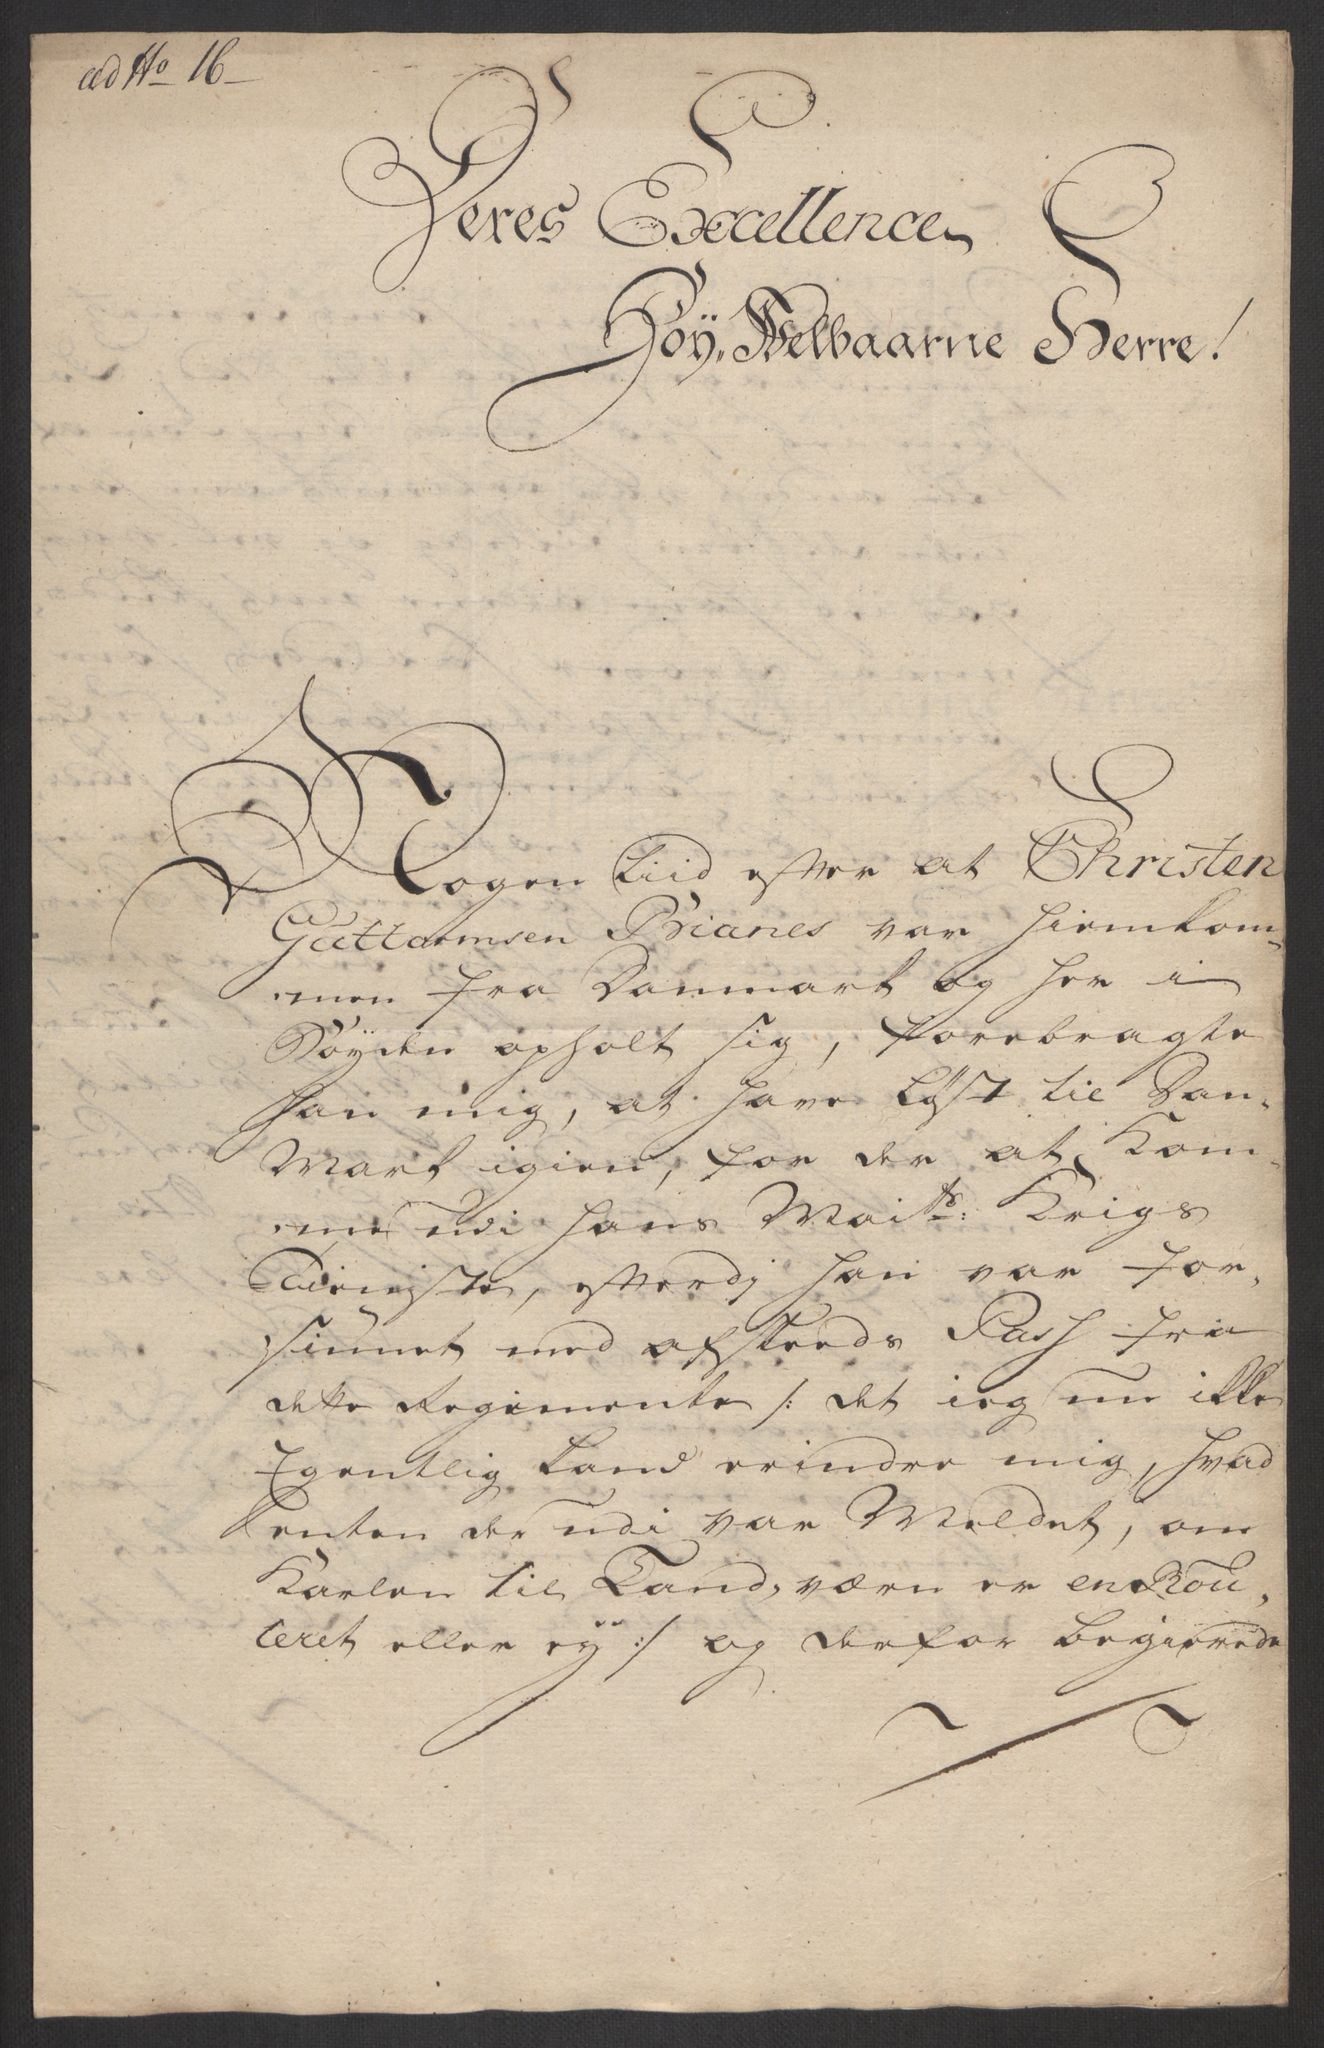 ad No 16
Deres Excellence
Höy, Welbaarne Herre!
Nogen tiid efter at Christen
Guttormsen Brianes var hiemkom-
men fra Danmark og her i
Böyden opholt sig, forebragte
han mig, at have Lyst til Dan-
Mark igien, for der at Kom-
me udi hans Maits: Krigs
Tieniste, efterdj han var for-
siunet med afskeeds Pass fra
dette Regimente /: det ieg nu ikke
Egentlig kand erindre mig, hvad
enten der udi var Meldet, om
Karlen til Land, værn er en Rou-
leret eller ey :/ og derfor begierede